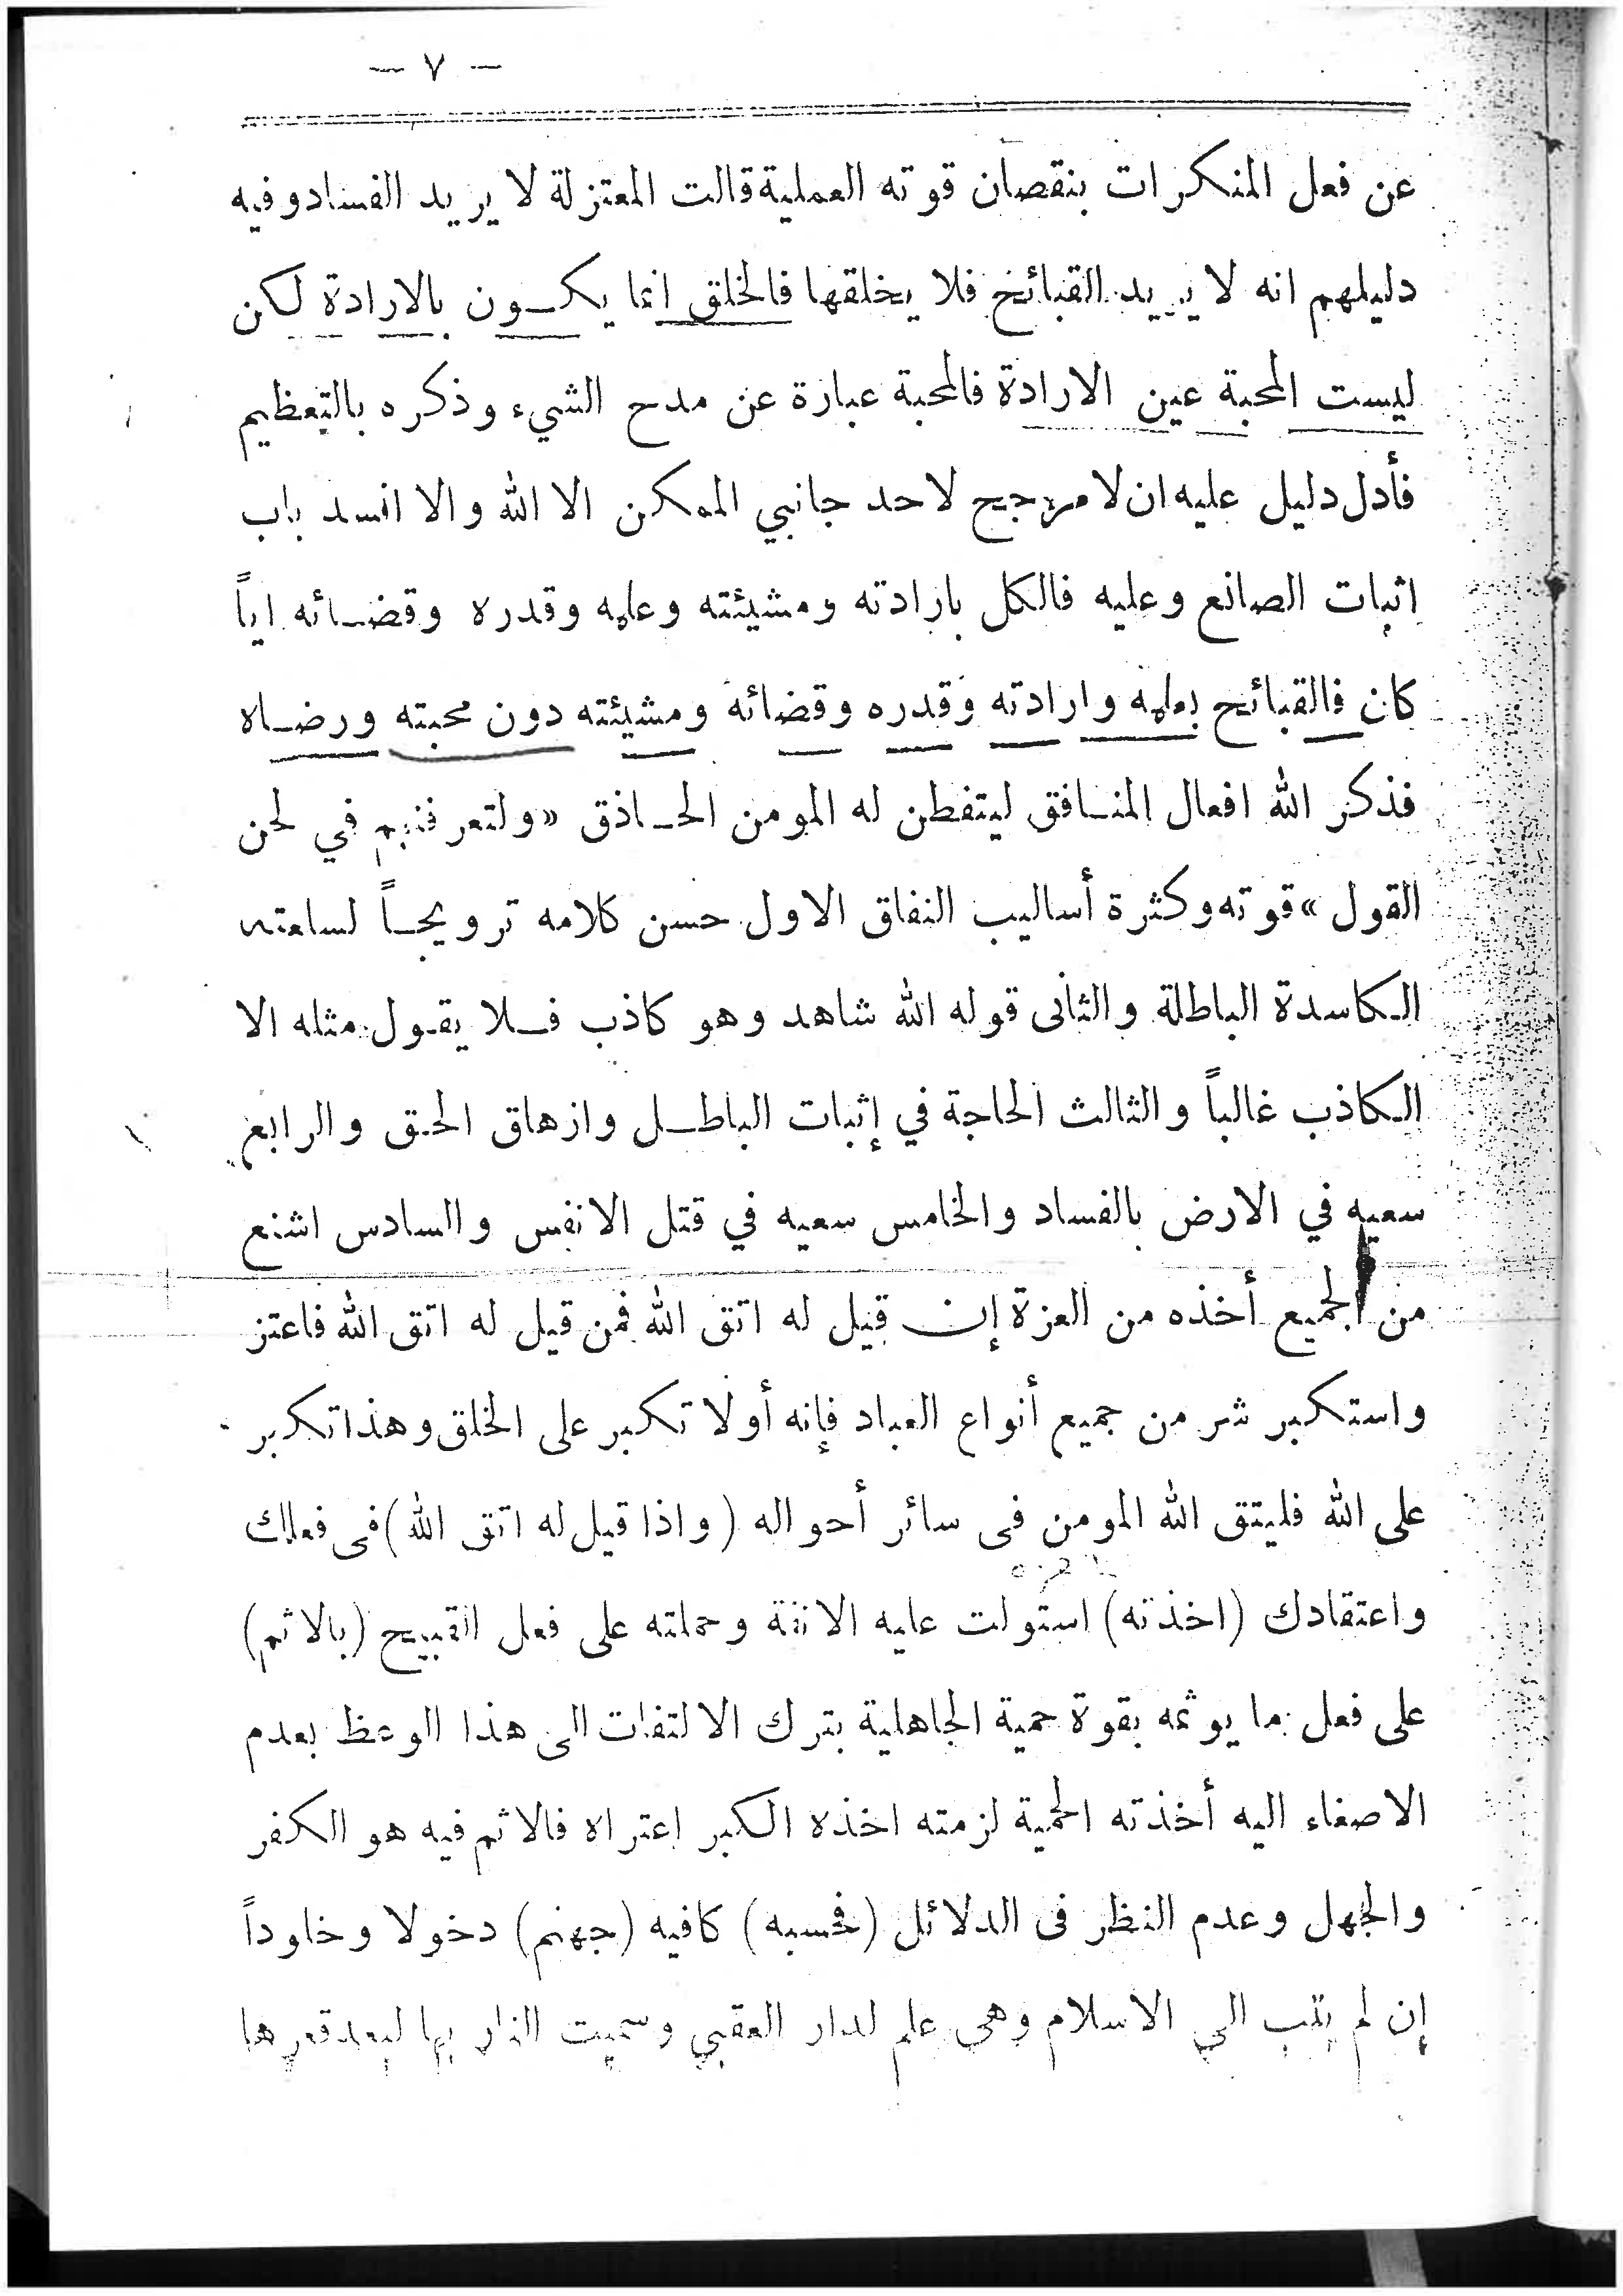 — ٧ —
عن فعل المنكرات بنقصان قوته العملية قالت المعتزلة لا يريد الفساد وفيه
دليلهم انه لا يريد القبائح فلا يخلقها فالخلق انما يكون بالارادة لكن
ليست المحبة عين الارادة فالمحبة عبارة عن مدح الشيء وذكره بالتعظيم
فأدل دليل عليه ان لا مرجح لاحد جانبي الممكن الا الله والا انسد باب
اثبات الصانع وعليه فالكل بارادته ومشيئته وعلمه وقدره وقضائه اياً
كان فالقبائح بعلمه وارادته وقدره وقضائه ومشيئته دون محبته ورضاه
فذكر الله افعال المنافق ليتفطن له المومن الحاذق «ولتعرفنهم في لحن
القول» قوته وكثرة أساليب النفاق الاول حسن كلامه ترويجاً لسلعته
الكاسدة الباطلة والثانى قوله الله شاهد وهو كاذب فلا يقول مثله الا
الكاذب غالباً والثالث الحاجة في إثبات الباطل وازهاق الحق والرابع
سعيه في الارض بالفساد والخامس سعيه في قتل الانفس والسادس اشنع
من الجميع أخذه من العزة إن قيل له اتق الله فمن قيل له اتق الله فاعتز
واستكبر شر من جميع أنواع العباد فإنه أولا تكبر على الخلق وهذا تكبر
على الله فليتق الله المومن فى سائر أحواله (واذا قيل له اتق الله) فى فعلك
واعتقادك (اخذته) استولت عليه الانفة وحملته على فعل القبيح (بالاثم)
على فعل ما يوثمه بقوة حمية الجاهلية بترك الالتفات الى هذا الوعظ بعدم
الاصغاء اليه أخذته الحمية لزمته اخذه الكبر اعتراه فالاثم فيه هو الكفر
والجهل وعدم النظر فى الدلائل (فحسبه) كافيه (جهنم) دخولا وخلوداً
إن لم يتب الى الاسلام وهى علم لدار العقبي وسميت النار بها لبعد قعرها